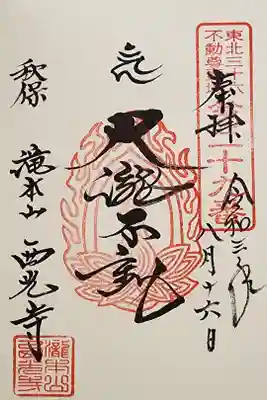 東北三十六
不動尊
二十九番
奉拝
令和三年
八月十六日
大瀧不動
秋保
滝本山 西光寺
瀧本山
西光寺